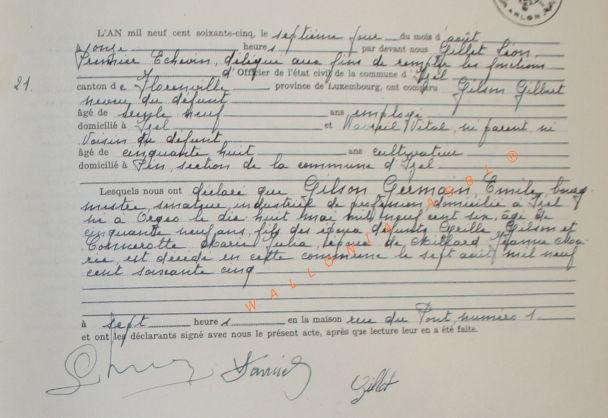 ARLON
L'AN mil neuf cent soixante-cinq, le septième jour du mois d'août
onze heures par devant nous Gillet Léon,
Premier Echevin, délégué aux fins de remplir les fonctions
d'Officier de l'état civil de la commune d'Izel
21.
canton de Florenville province de Luxembourg, ont comparu Gilson Gilbert
neveu du défunt
âgé de ans employé
domicilié à Izel et Vital, ni parent, ni
voisin du défunt
âgé de cinquante huit ans cultivateur
domicilié à Pin, section de la commune d'Izel
Lesquels nous ont déclaré que Gilson Germain, Emile, bourg
mestre, sénateur, industriel de profession, domicilié à Izel
né à Orgeo le dix huit mai mil neuf cent six, âgé de
cinquante neuf ans, fils des époux défunts Gilson et
Connerotte Maria Julia, époux de Jeanne Ma
rie, est décédé en cette commune le sept août mil neuf
cent soixante cinq
à sept heures en la maison rue du Pont, numéro 1
et ont les déclarants signé avec nous le présent acte, après que lecture leur en a été faite.
Gillet
WALLONIA ASBL ®